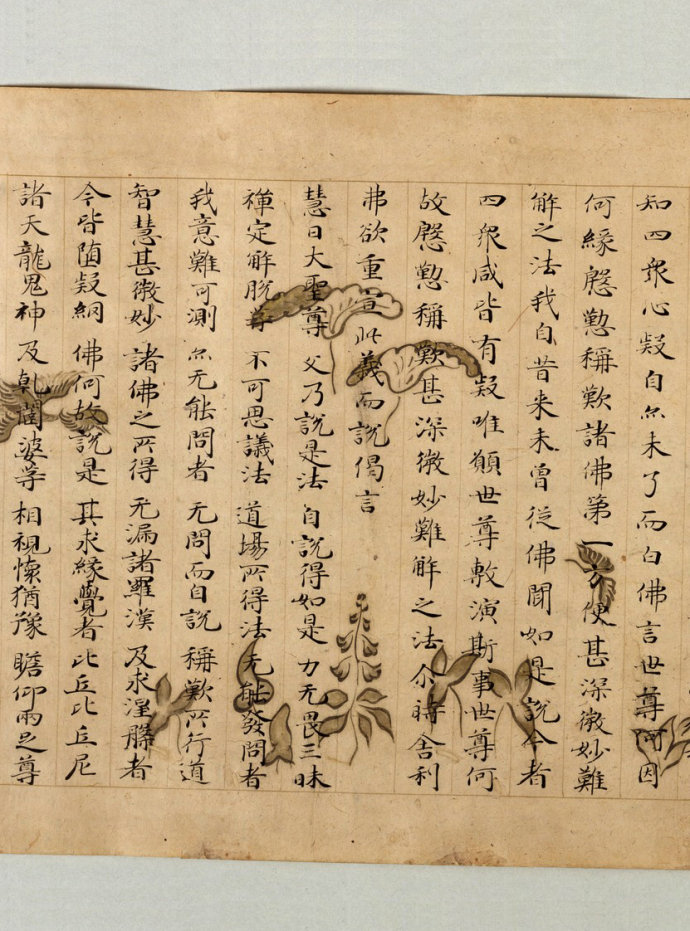 知四衆心疑自尒未了而白佛言世尊何因
何緣慇懃稱歎諸佛第一方便甚深微妙難
解之法我自昔来未曾從佛聞如是說今者
四衆咸皆有疑唯願世尊敷演斯事世尊何
故慇懃稱歎甚深微妙難解之法尒時舍利
弗欲重宣此義而說偈言
慧日大聖尊 久乃說是法 自說得如是 力无畏三昧
禅定解脫等 不可思議法 道場所得法 无能發問者
我意難可測 尒无能問者 无問而自說 稱歎所行道
智慧甚微妙 諸佛之所得 无漏諸羅漢 及求涅槃者
今皆堕疑網 佛何故說是 其求緣覺者 比丘比丘尼
諸天龍鬼神 及乾闥婆等 相視懷猶豫 瞻仰兩足尊